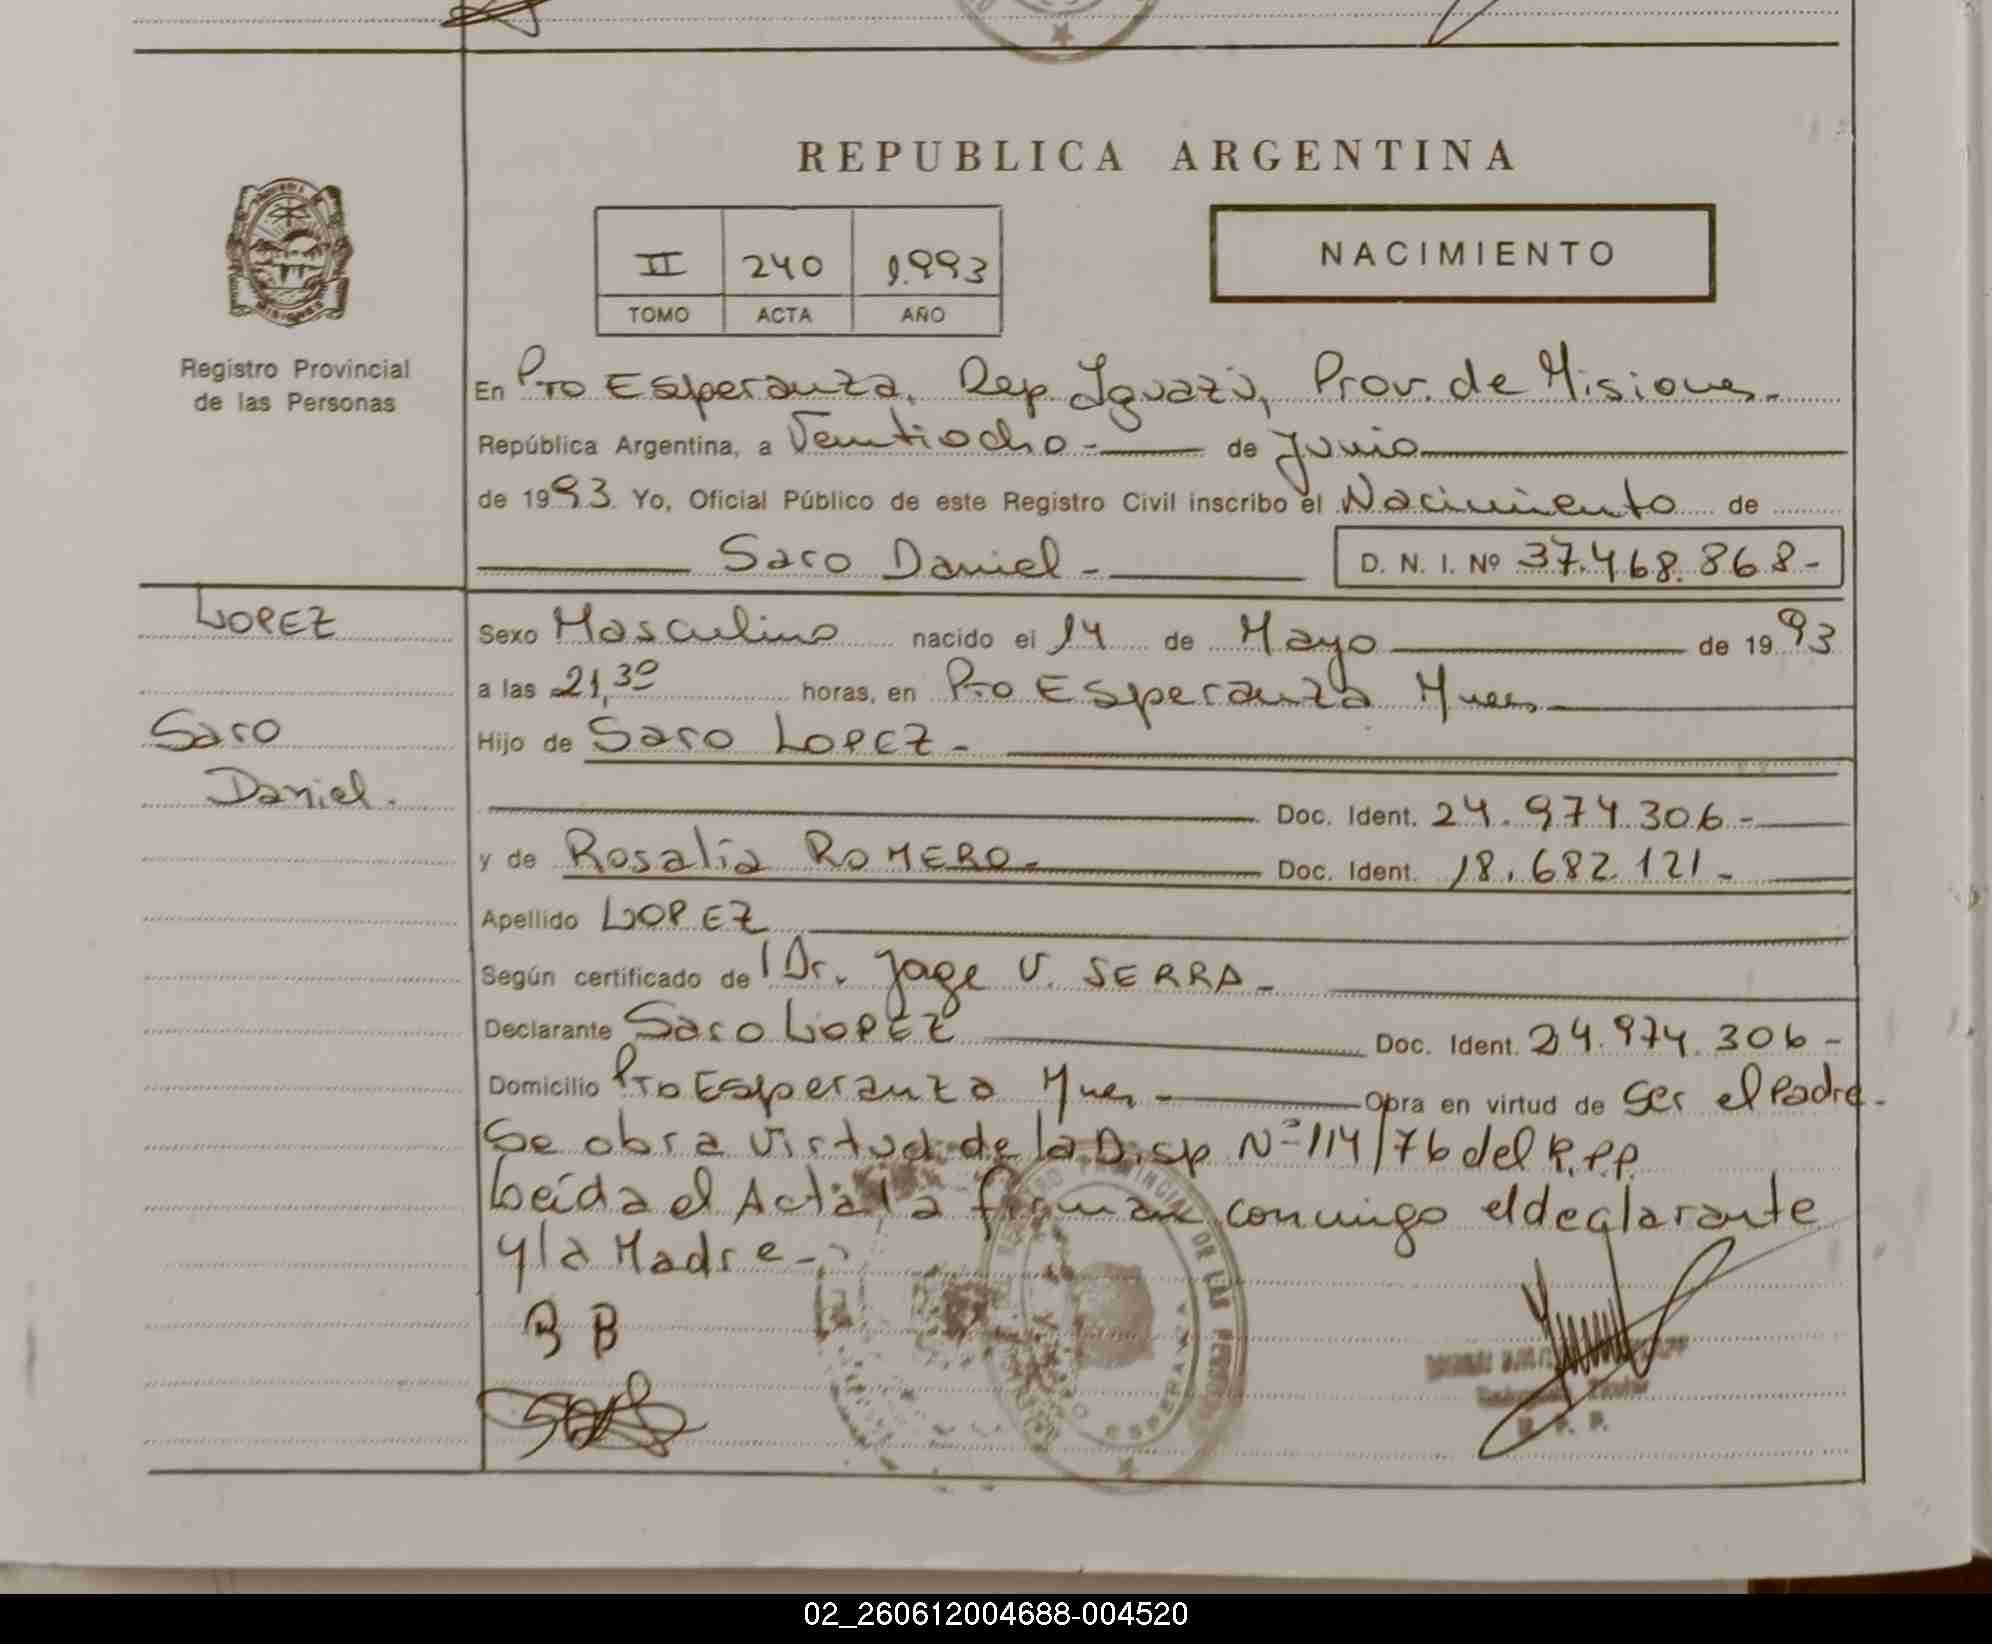 REPUBLICA ARGENTINA
II 240 1.993
TOMO ACTA AÑO
NACIMIENTO
Registro Provincial
de las Personas
En Pto Esperanza, Dep. Iguazú, Prov. de Misiones.
República Argentina, a Veintiocho - de Junio
de 1993. Yo, Oficial Público de este Registro Civil inscribo el Nacimiento de
Saro Daniel - D. N. I. Nº 37.468.868-
LOPEZ
Saro
Daniel.
Sexo Masculino nacido el 14 de Mayo de 1993
a las 21,30 horas, en Pto Esperanza Mnes
Hijo de Saro LOPEZ -
Doc. Ident. 24.974.306-
y de Rosalia ROMERO- Doc. Ident. 18.682.121-
Apellido LOPEZ
Según certificado de Dr. Jage V. SERRA-
Declarante Saro LOPEZ Doc. Ident. 24.974.306-
Domicilio Pto Esperanza Mnes - Obra en virtud de ser el Padre-
Se obra virtud de la Disp Nº 114/76 del R.P.P.
Leida el Acta la firman conmigo el declarante
y la Madre-
B B
ESPERANZA
R. P. P.
02_260612004688-004520